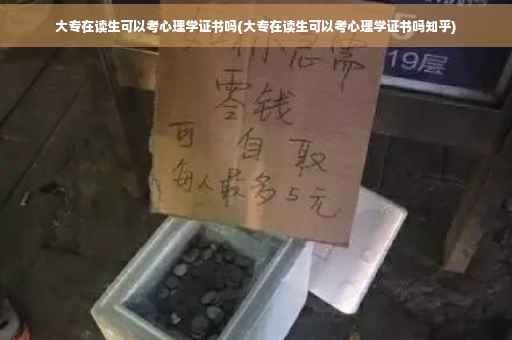 大专在读生可以考心理学证书吗(大专在读生可以考心理学证书吗知乎)
你急需
19层
零钱
可自取
每人最多5元